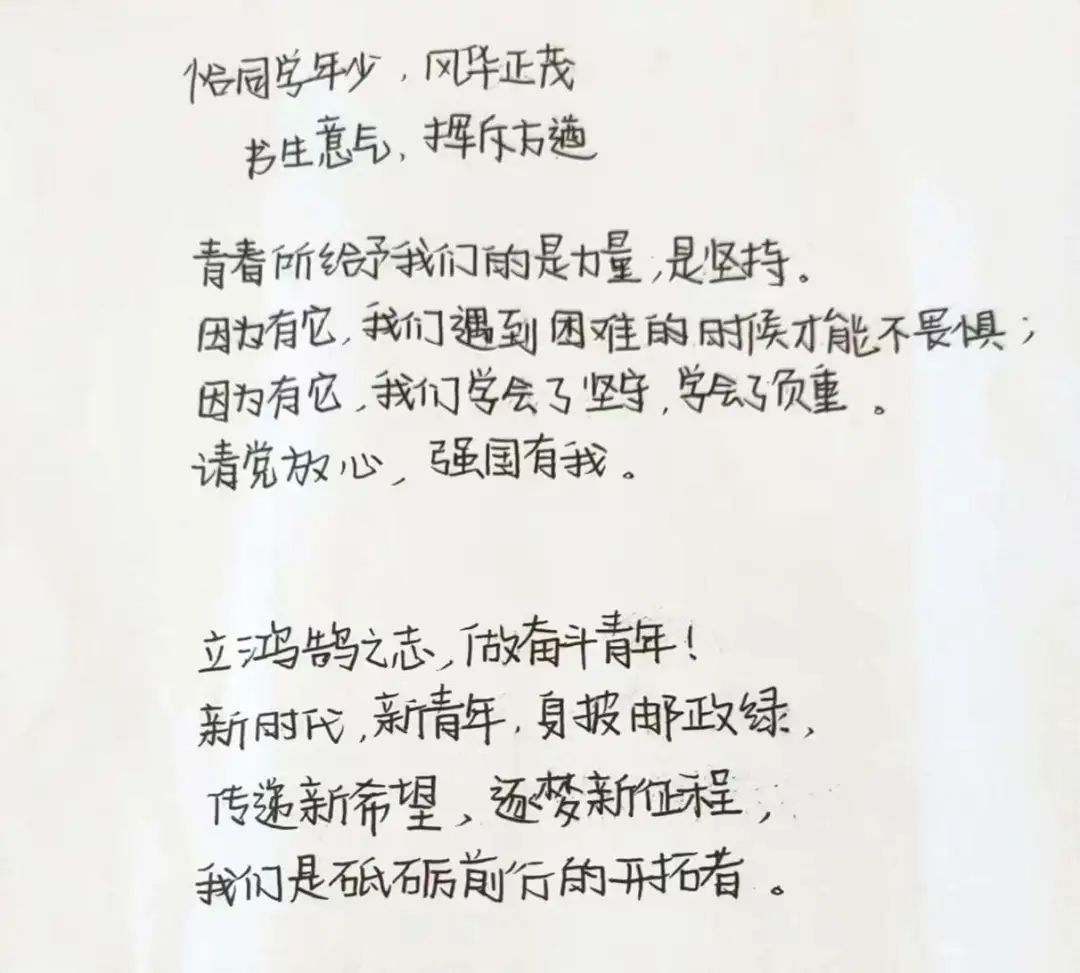 恰同学年少，风华正茂
书生意气，挥斥方遒
青春所给予我们的是力量，是坚持。
因为有它，我们遇到困难的时候才能不畏惧；
因为有它，我们学会了坚守，学会了负重。
请党放心，强国有我。
立鸿鹄之志，做奋斗青年！
新时代，新青年，身披邮政绿，
传递新希望，逐梦新征程，
我们是砥砺前行的开拓者。